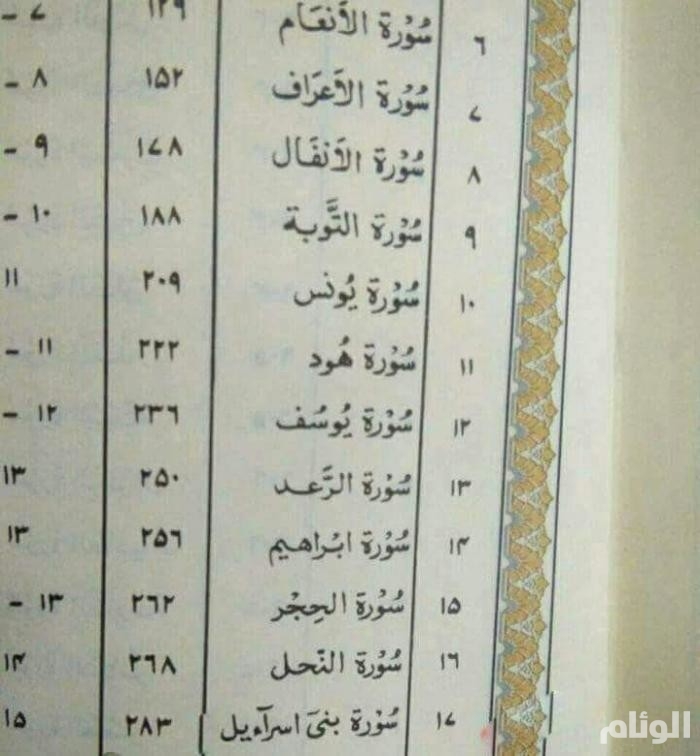 ٦ سُوْرَة الأَنعَام ١٢٩ ٧ -
٧ سُوْرَة الأَعرَاف ١٥٢ ٨ -
٨ سُوْرَة الأَنفَال ١٧٨ ٩ -
٩ سُوْرَة التَّوبَة ١٨٨ ١٠ -
١٠ سُوْرَة يُونس ٢٠٩ ١١
١١ سُوْرَة هُود ٢٢٢ ١١ -
١٢ سُوْرَة يُوسُف ٢٣٦ ١٢ -
١٣ سُوْرَة الرَّعد ٢٥٠ ١٣
١۴ سُوْرَة ابْراهيم ٢٥٦ ١٣
١٥ سُوْرَة الحِجْر ٢٦٢ ١٣ -
١٦ سُوْرَة النَحل ٢٦٨ ١۴
١٧ سُوْرَة بنیَ اسرآءيل ٢٨٣ ١٥
الوئام